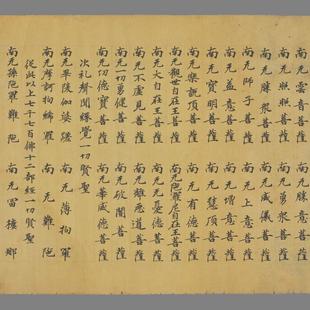 南无雲音菩薩 南无勝意菩薩
南无照菩薩 南无勇眾菩薩
南无勝眾菩薩 南无威儀菩薩
南无師子菩薩 南无上意菩薩
南无益意菩薩 南无增意菩薩
南无寶明菩薩 南无慧頂菩薩
南无樂說頂菩薩 南无有德菩薩
南无觀世自在王菩薩 南无陀羅尼自在王菩薩
南无大自在王菩薩 南无无憂德菩薩
南无不虛見菩薩 南无離惡道菩薩
南无一切勇健菩薩 南无破闇菩薩
南无功德寶菩薩 南无華威德菩薩
次礼聲聞緣覺一切賢聖
南无畢陵伽婆蹉 南无薄拘羅
南无摩訶拘絺羅 南无難陀
從此以上七千七百佛十二部經一切賢聖
南无孫陀羅難陀 南无富樓那